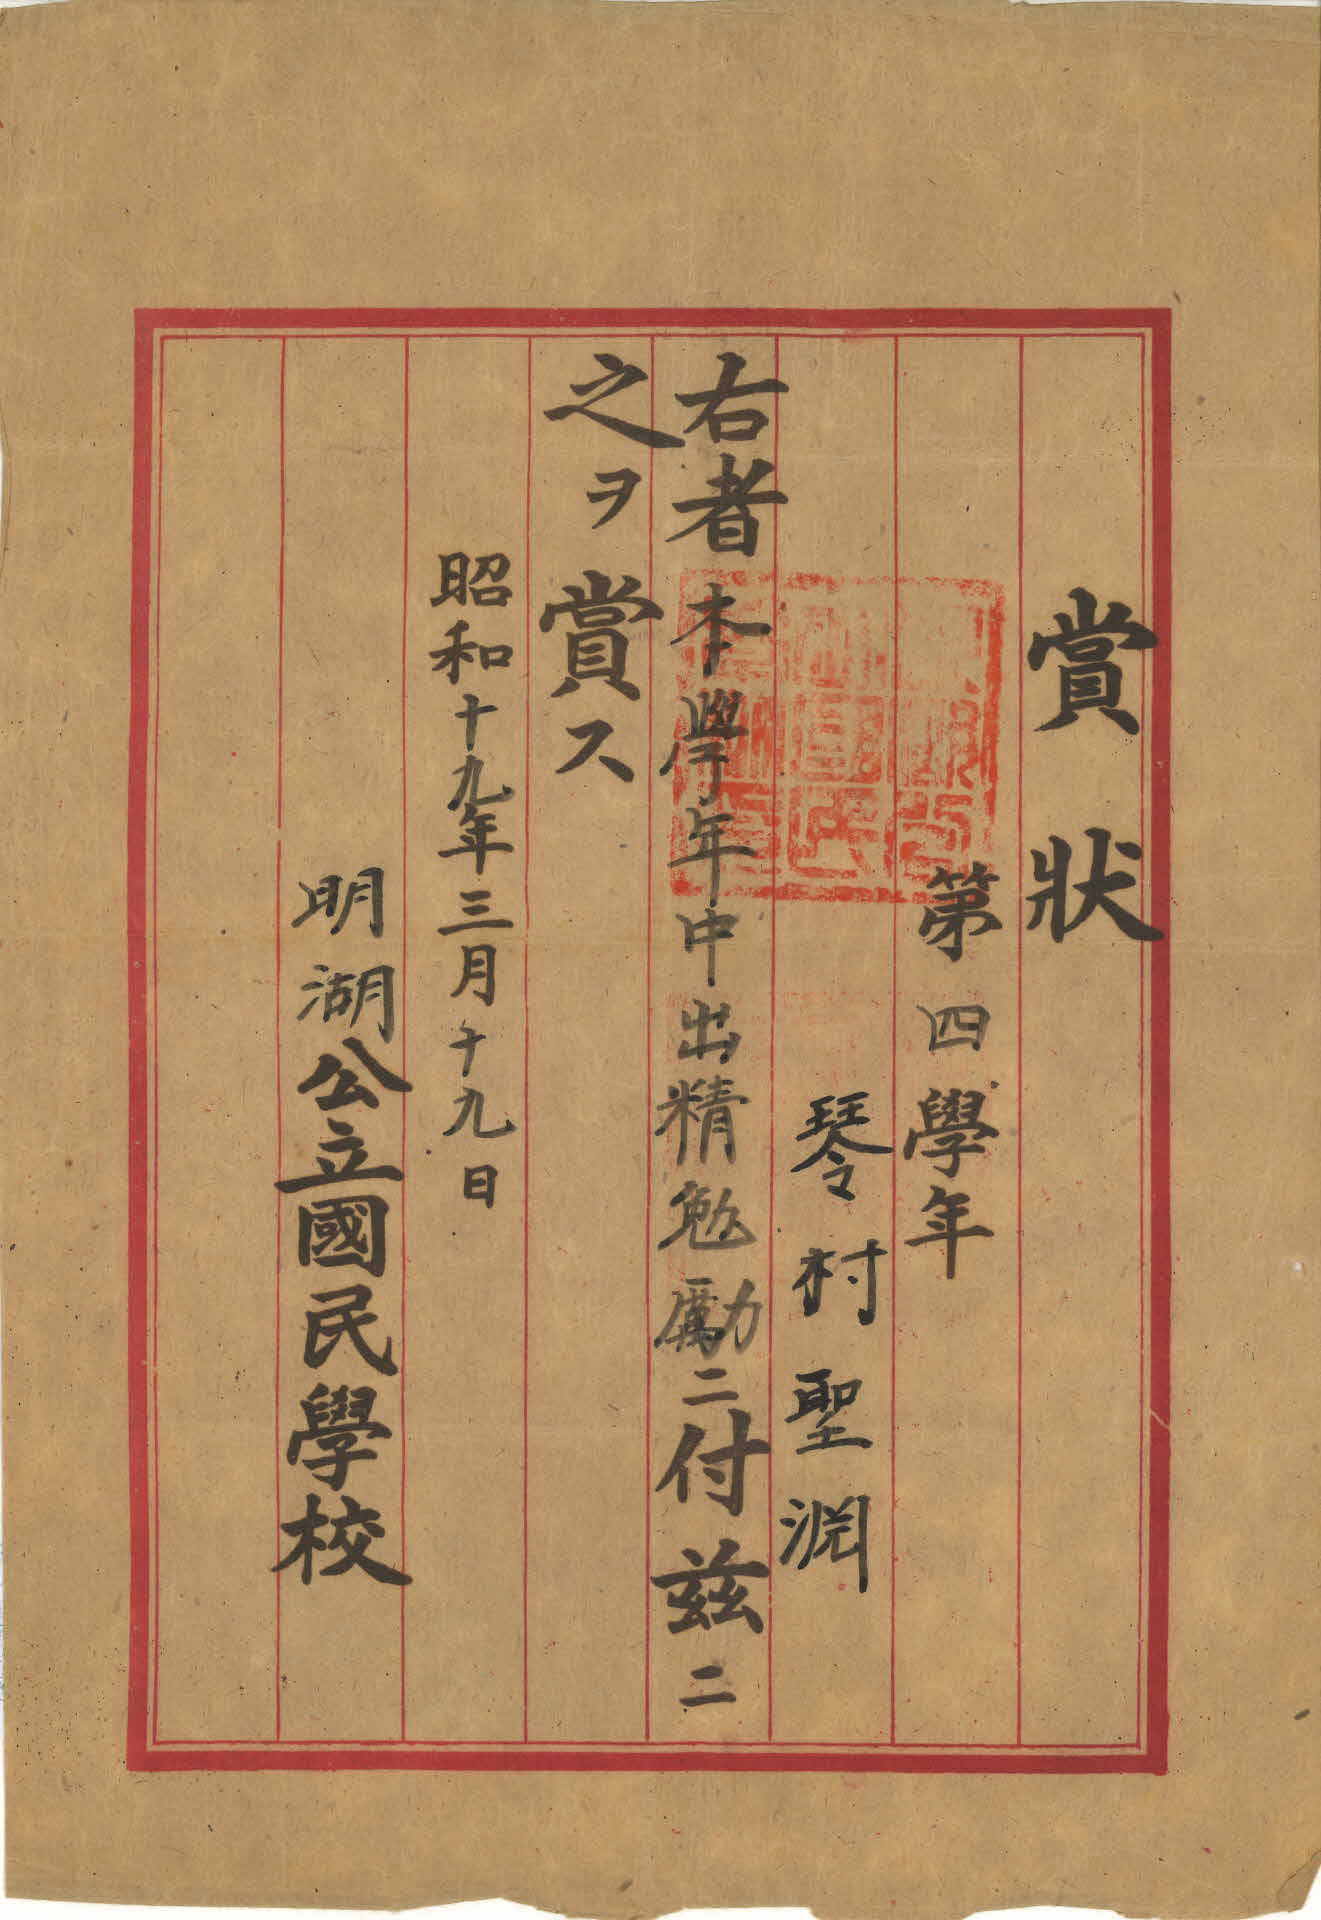 賞狀
第四學年
琴村聖渊
右者本學年中出精勉勵ニ付茲ニ
之ヲ賞ス
昭和十九年三月十九日
明湖公立國民學校